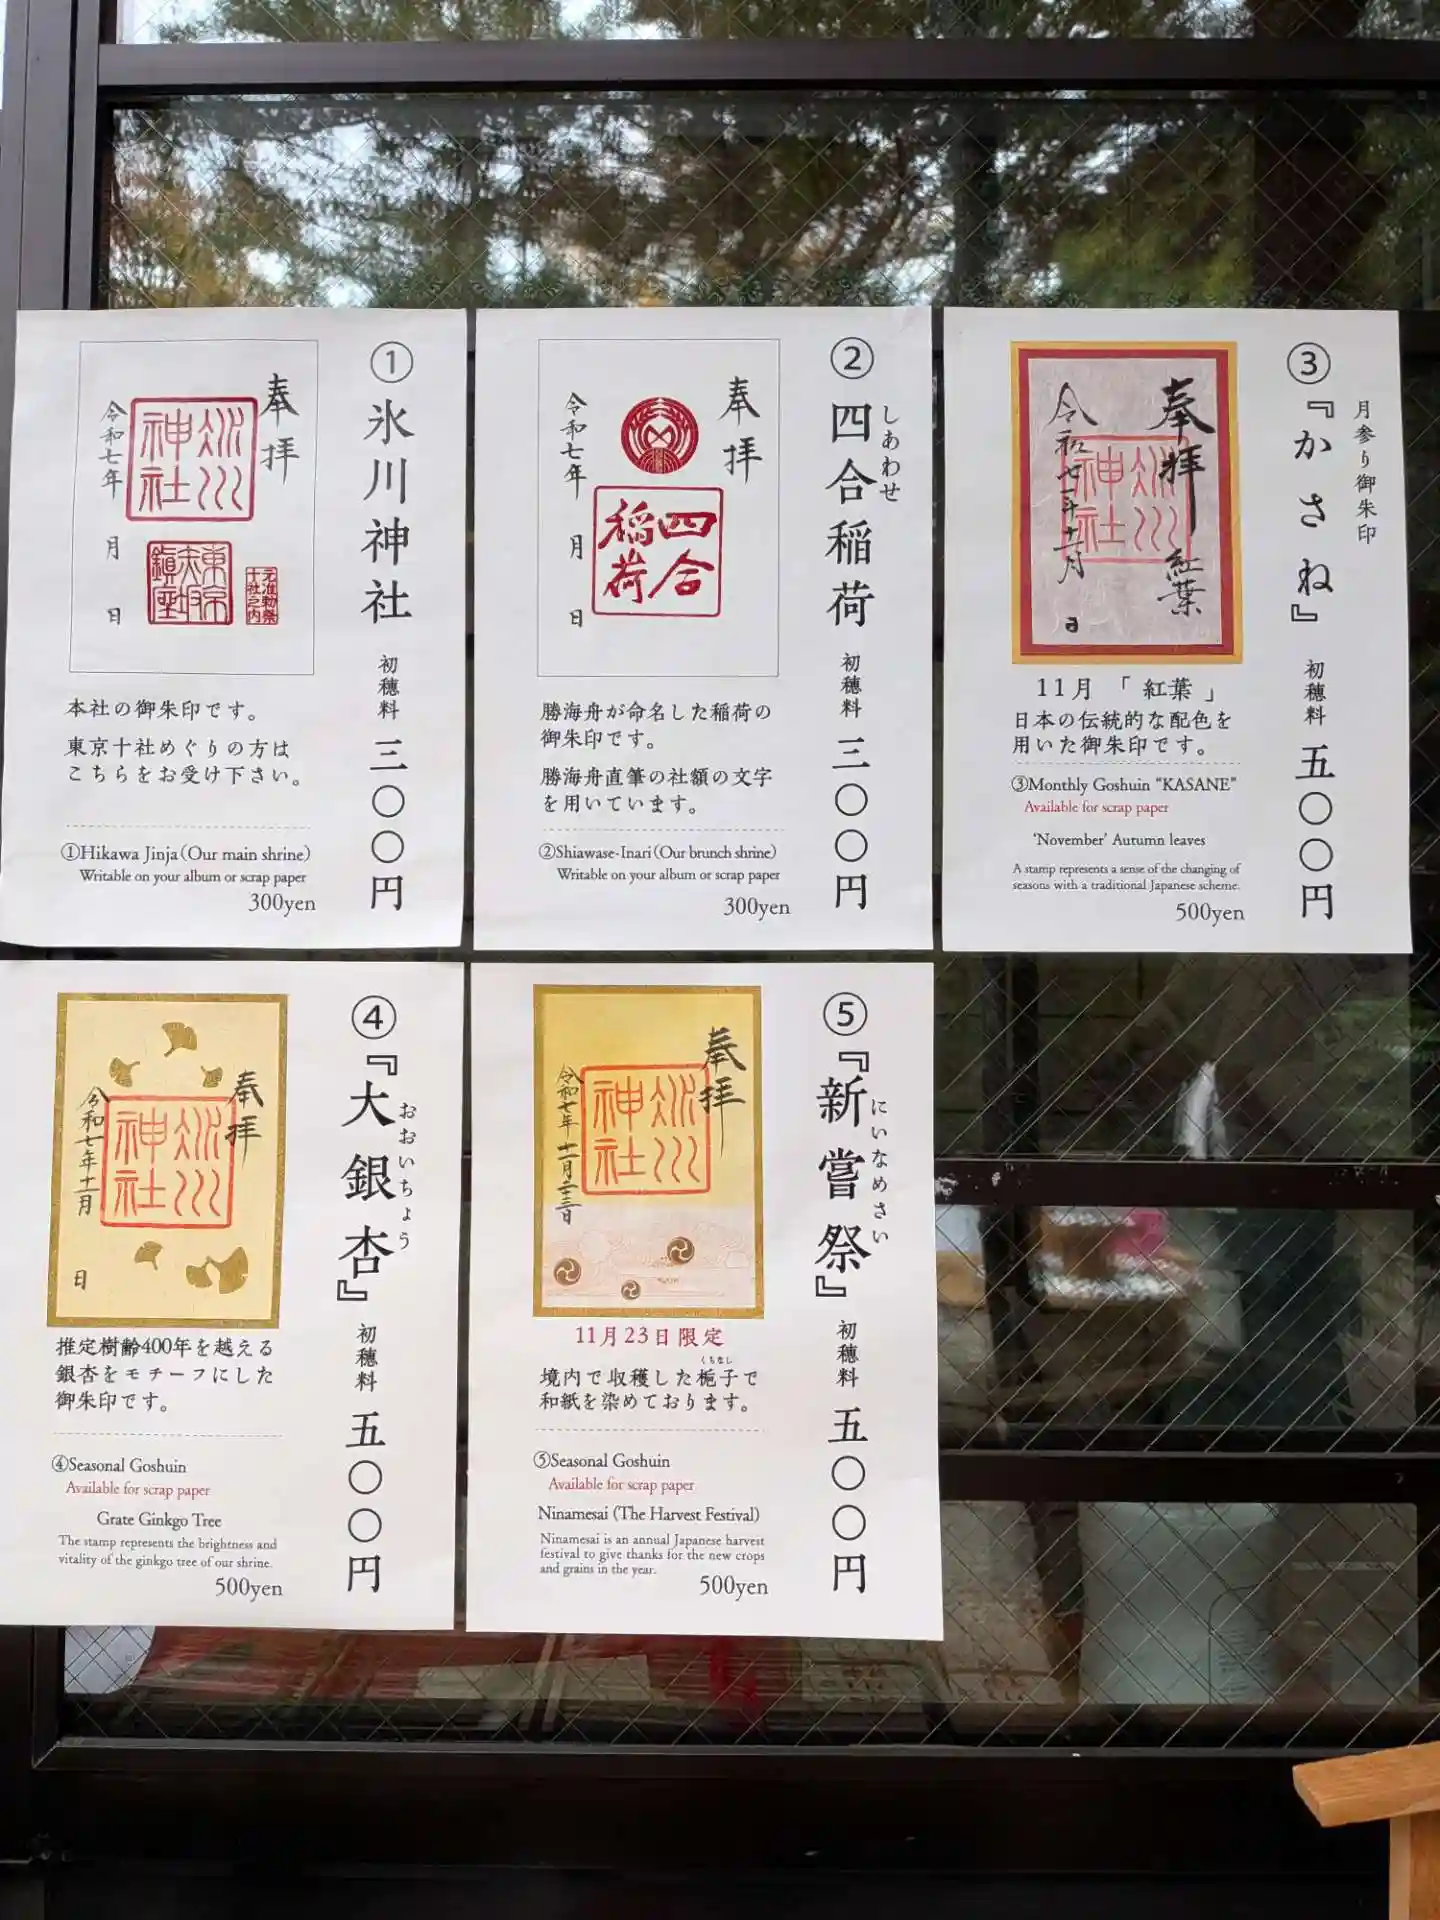 ①
氷川神社
初穂料
三〇〇円
奉拝
氷川神社
元准勅祭
十社之内
令和七年 月 日
本社の御朱印です。
東京十社めぐりの方は
こちらをお受け下さい。
①Hikawa Jinja(Our main shrine)
Writable on your album or scrap paper
300yen
②
四合稲荷
しあわせ
初穂料
三〇〇円
奉拝
四合稲荷
令和七年 月 日
勝海舟が命名した稲荷の
御朱印です。
勝海舟直筆の社額の文字
を用いています。
②Shiawase-Inari(Our brunch shrine)
Writable on your album or scrap paper
300yen
月参り御朱印
③
『かさね』
初穂料
五〇〇円
奉拝 紅葉
氷川神社
令和七年十一月 日
11月 「 紅葉 」
日本の伝統的な配色を
用いた御朱印です。
③Monthly Goshuin “KASANE”
Available for scrap paper
‘November’ Autumn leaves
A stamp represents a sense of the changing of
seasons with a traditional Japanese scheme.
500yen
④
『大銀杏』
おおいちょう
初穂料
五〇〇円
奉拝
氷川神社
令和七年十一月 日
推定樹齢400年を越える
銀杏をモチーフにした
御朱印です。
④Seasonal Goshuin
Available for scrap paper
Grate Ginkgo Tree
The stamp represents the brightness and
vitality of the ginkgo tree of our shrine.
500yen
⑤
『新嘗祭』
にいなめさい
初穂料
五〇〇円
奉拝
氷川神社
令和七年 十一月二十三日
11月23日限定
くちなし
境内で収穫した梔子で
和紙を染めております。
⑤Seasonal Goshuin
Available for scrap paper
Ninamesai (The Harvest Festival)
Ninamesai is an annual Japanese harvest
festival to give thanks for the new crops
and grains in the year.
500yen